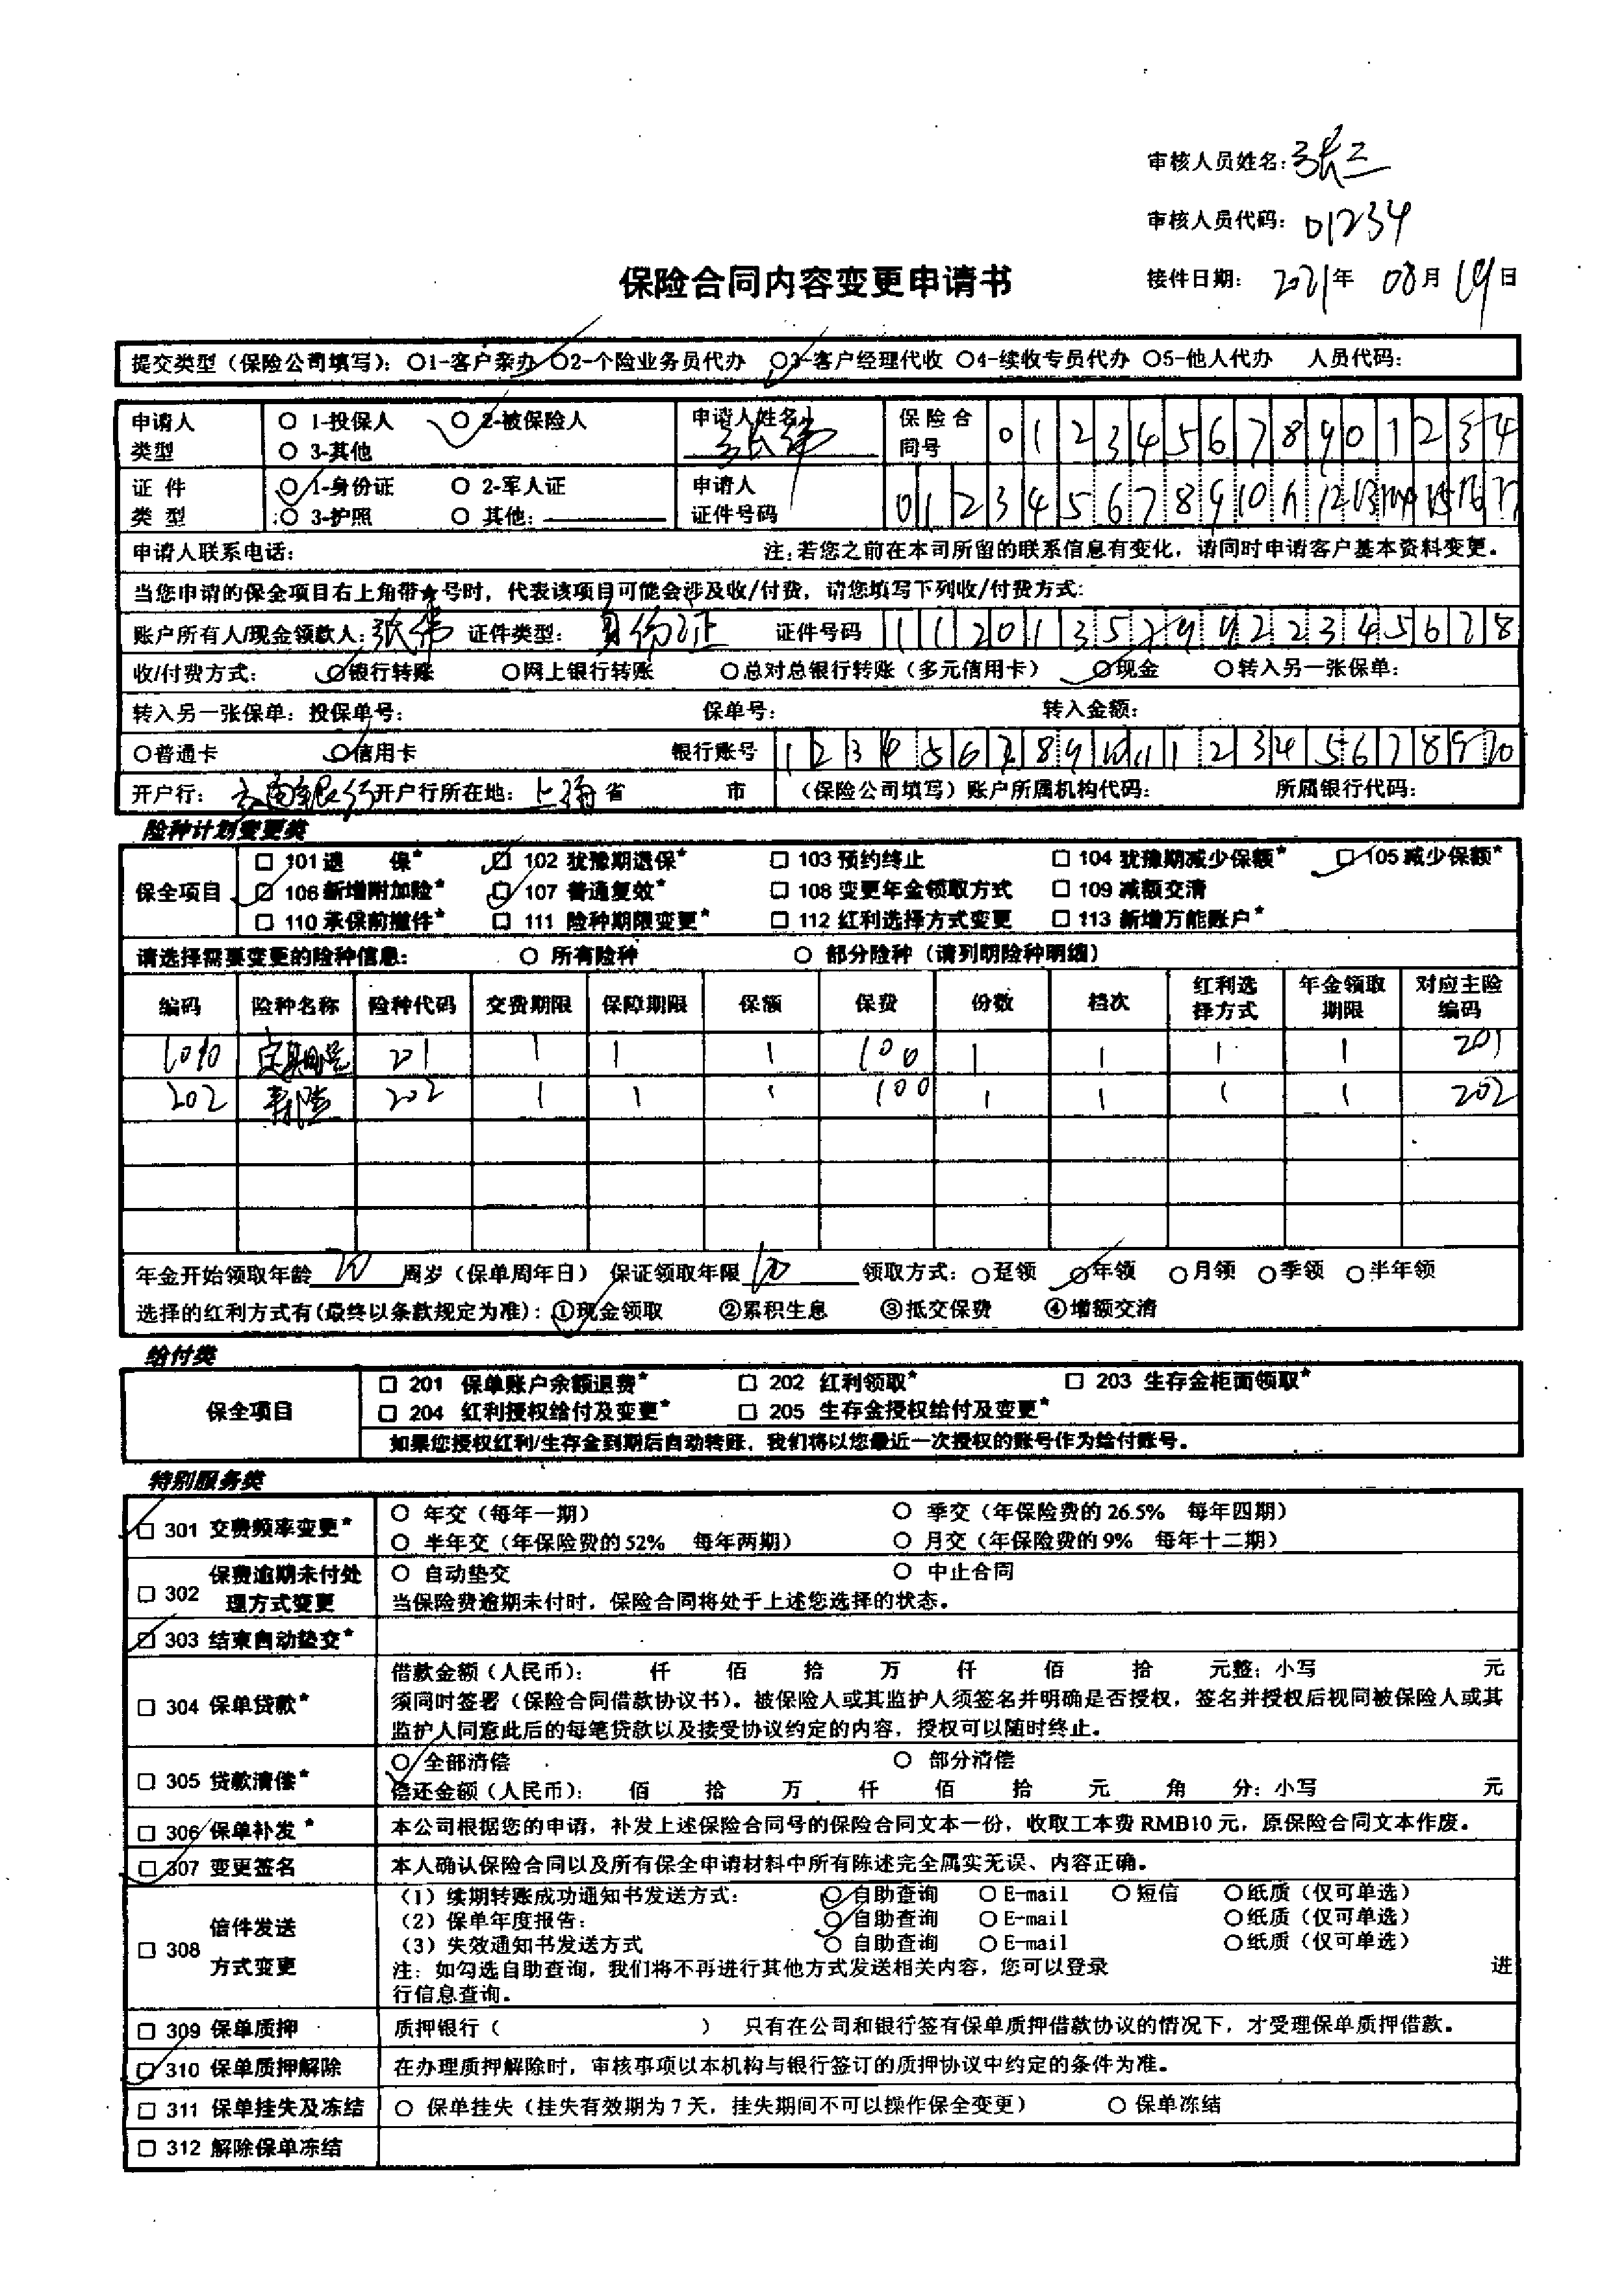 审核人员姓名:张三
审核人员代码:01234
保险合同内容变更申请书
接件日期: 2021年 08月 19日
提交类型(保险公司填写):○1-客户亲办 ○2-个险业务员代办 ○3-客户经理代收 ○4-续收专员代办 ○5-他人代办 人员代码:
申请人类型 ○ 1-投保人 ○ 2-被保险人 申请人姓名 张伟 保险合同号 0 1 2 3 4 5 6 7 8 9 0 1 2 3 4
○ 3-其他
证件类型 ○ 1-身份证 ○ 2-军人证 申请人证件号码 0 1 2 3 4 5 6 7 8 9 10 11 12 13 14 15 16 17
○ 3-护照 ○ 其他:
申请人联系电话: 注:若您之前在本司所留的联系信息有变化,请同时申请客户基本资料变更。
当您申请的保全项目右上角带★号时,代表该项目可能会涉及收/付费,请您填写下列收/付费方式:
账户所有人/现金领款人:张伟 证件类型: 身份证 证件号码 1 1 2 0 1 3 5 7 9 9 2 2 3 4 5 6 7 8
收/付费方式: ○银行转账 ○网上银行转账 ○总对总银行转账(多元信用卡) ○现金 ○转入另一张保单:
转入另一张保单:投保单号: 保单号: 转入金额:
○普通卡 ○信用卡 银行账号 1 2 3 4 5 6 7 8 9 10 11 1 2 3 4 5 6 7 8 9 10
开户行: 云南银行 开户行所在地: 上海 省 市 (保险公司填写)账户所属机构代码: 所属银行代码:
险种计划变更类
保全项目
□ 101 退 保* □ 102 犹豫期退保* □ 103 预约终止 □ 104 犹豫期减少保额* □ 105 减少保额*
□ 106 新增附加险* □ 107 普通复效* □ 108 变更年金领取方式 □ 109 减额交清
□ 110 承保前撤件* □ 111 险种期限变更* □ 112 红利选择方式变更 □ 113 新增万能账户*
请选择需要变更的险种信息: ○ 所有险种 ○ 部分险种(请列明险种明细)
编码 险种名称 险种代码 交费期限 保障期限 保额 保费 份数 档次 红利选择方式 年金领取期限 对应主险编码
1010 定期险 201 1 1 1 100 1 1 1 1 201
202 寿险 202 1 1 1 100 1 1 1 1 202
年金开始领取年龄 20 周岁(保单周年日) 保证领取年限 10 领取方式:○趸领 ○年领 ○月领 ○季领 ○半年领
选择的红利方式有(最终以条款规定为准):①现金领取 ②累积生息 ③抵交保费 ④增额交清
给付类
保全项目
□ 201 保单账户余额退费* □ 202 红利领取* □ 203 生存金柜面领取*
□ 204 红利授权给付及变更* □ 205 生存金授权给付及变更*
如果您授权红利/生存金到期后自动转账,我们将以您最近一次授权的账号作为给付账号。
特别服务类
□ 301 交费频率变更* ○ 年交(每年一期) ○ 季交(年保险费的26.5% 每年四期)
○ 半年交(年保险费的52% 每年两期) ○ 月交(年保险费的9% 每年十二期)
□ 302 保费逾期未付处理方式变更 ○ 自动垫交 ○ 中止合同
当保险费逾期未付时,保险合同将处于上述您选择的状态。
□ 303 结束自动垫交*
□ 304 保单贷款* 借款金额(人民币): 仟 佰 拾 万 仟 佰 拾 元整;小写 元
须同时签署(保险合同借款协议书)。被保险人或其监护人须签名并明确是否授权,签名并授权后视同被保险人或其
监护人同意此后的每笔贷款以及接受协议约定的内容,授权可以随时终止。
□ 305 贷款清偿* ○ 全部清偿 ○ 部分清偿
偿还金额(人民币): 佰 拾 万 仟 佰 拾 元 角 分:小写 元
□ 306 保单补发* 本公司根据您的申请,补发上述保险合同号的保险合同文本一份,收取工本费RMB10元,原保险合同文本作废。
□ 307 变更签名 本人确认保险合同以及所有保全申请材料中所有陈述完全属实无误、内容正确。
□ 308 信件发送方式变更 (1)续期转账成功通知书发送方式: ○ 自助查询 ○ E-mail ○ 短信 ○纸质(仅可单选)
(2)保单年度报告: ○ 自助查询 ○ E-mail ○纸质(仅可单选)
(3)失效通知书发送方式 ○ 自助查询 ○ E-mail ○纸质(仅可单选)
注:如勾选自助查询,我们将不再进行其他方式发送相关内容,您可以登录 进
行信息查询。
□ 309 保单质押 质押银行( ) 只有在公司和银行签有保单质押借款协议的情况下,才受理保单质押借款。
□ 310 保单质押解除 在办理质押解除时,审核事项以本机构与银行签订的质押协议中约定的条件为准。
□ 311 保单挂失及冻结 ○ 保单挂失(挂失有效期为7天,挂失期间不可以操作保全变更) ○ 保单冻结
□ 312 解除保单冻结